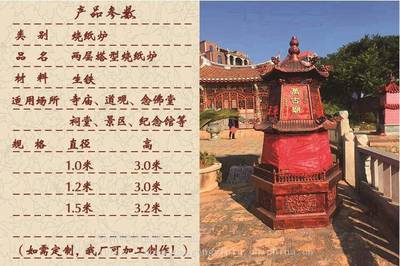 产品参数
类 别 烧纸炉
品 名 两层塔型烧纸炉
材 料 生铁
适用场所 寺庙、道观、念佛堂
祠堂、景区、纪念馆等
规 格 直径 高
1.0米 3.0米
1.2米 3.0米
1.5米 3.2米
(如需定制,我厂可加工创作!)